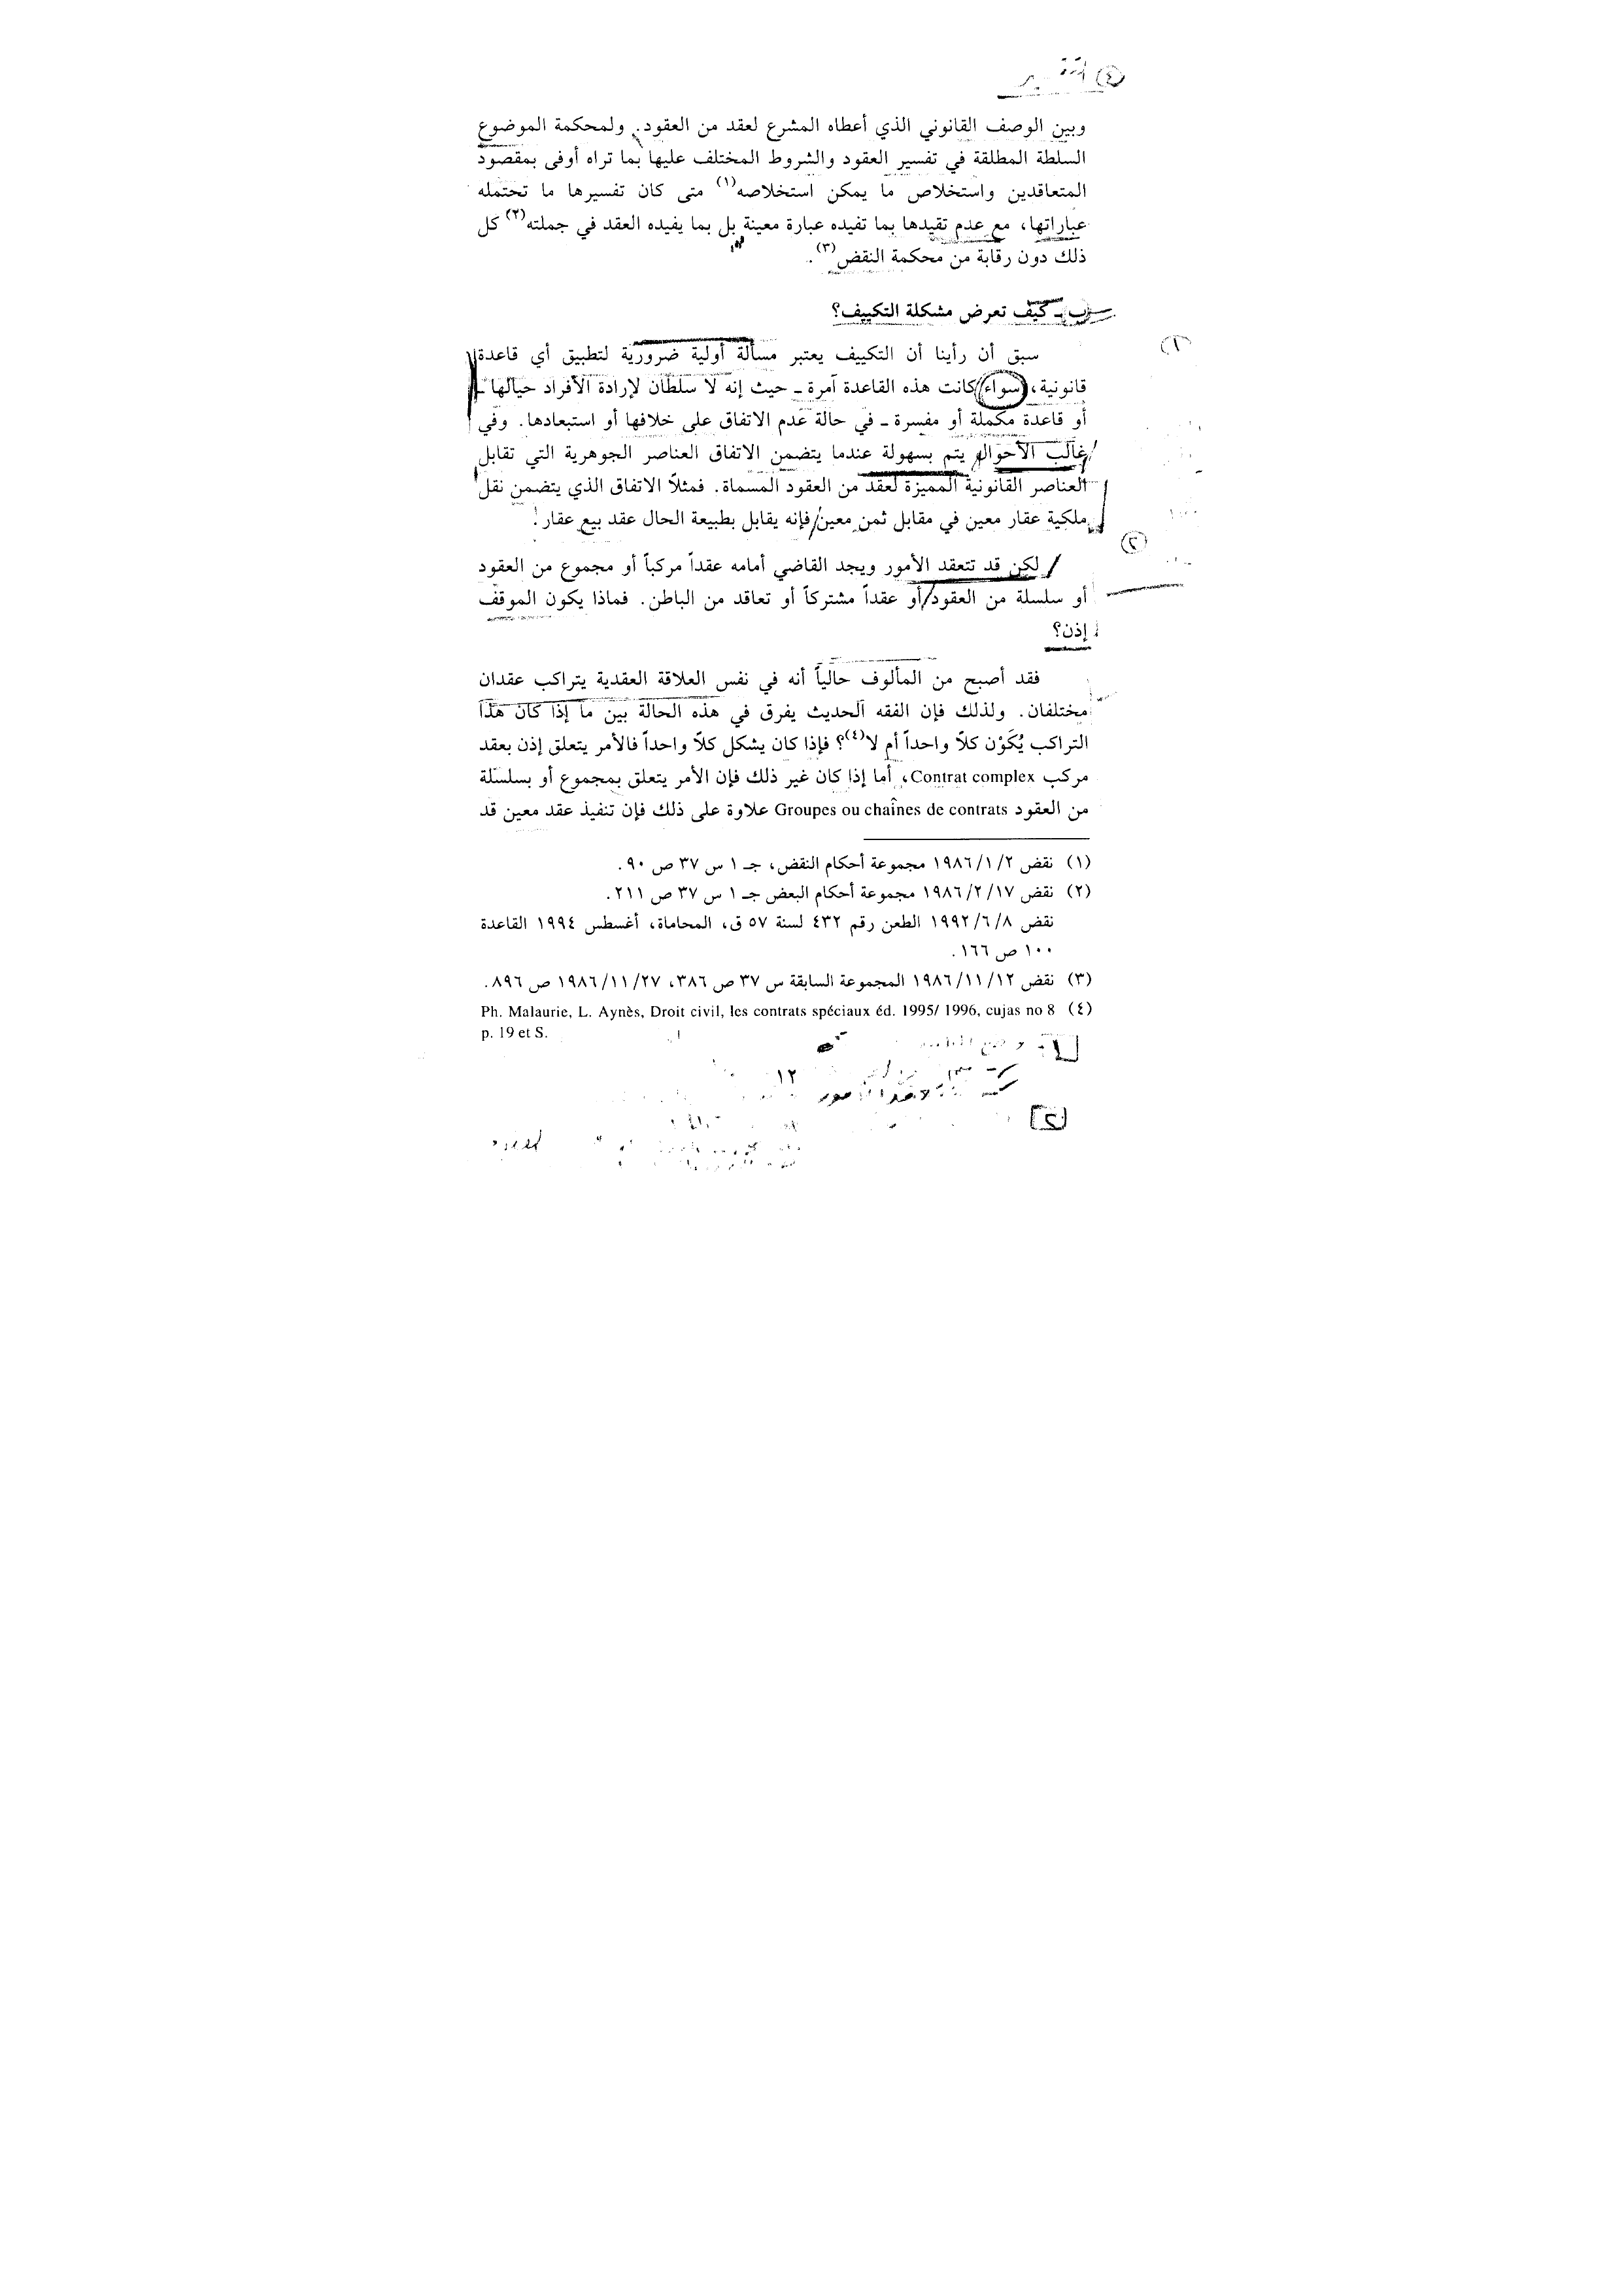 وبين الوصف القانوني الذي أعطاه المشرع لعقد من العقود. ولمحكمة الموضوع
السلطة المطلقة في تفسير العقود والشروط المختلف عليها بما تراه أوفى بمقصود
المتعاقدين واستخلاص ما يمكن استخلاصه(١) متى كان تفسيرها ما تحتمله
عباراتها، مع عدم تقيدها بما تفيده عبارة معينة بل بما يفيده العقد في جملته(٢) كل
ذلك دون رقابة من محكمة النقض(٣).
ب ـ كيف تعرض مشكلة التكييف؟
(١)
سبق أن رأينا أن التكييف يعتبر مسألة أولية ضرورية لتطبيق أي قاعدة
قانونية، سواء كانت هذه القاعدة آمرة ـ حيث إنه لا سلطان لإرادة الأفراد حيالها ـ
أو قاعدة مكملة أو مفسرة ـ في حالة عدم الاتفاق على خلافها أو استبعادها. وفي
غالب الأحوال يتم بسهولة عندما يتضمن الاتفاق العناصر الجوهرية التي تقابل
العناصر القانونية المميزة لعقد من العقود المسماة. فمثلاً الاتفاق الذي يتضمن نقل
ملكية عقار معين في مقابل ثمن معين فإنه يقابل بطبيعة الحال عقد بيع عقار.
(٢)
لكن قد تتعقد الأمور ويجد القاضي أمامه عقداً مركباً أو مجموع من العقود
أو سلسلة من العقود أو عقداً مشتركاً أو تعاقد من الباطن. فماذا يكون الموقف
إذن؟
فقد أصبح من المألوف حالياً أنه في نفس العلاقة العقدية يتراكب عقدان
مختلفان. ولذلك فإن الفقه الحديث يفرق في هذه الحالة بين ما إذا كان هذا
التراكب يُكَوْن كلاً واحداً أم لا(٤)؟ فإذا كان يشكل كلاً واحداً فالأمر يتعلق إذن بعقد
مركب Contrat complex، أما إذا كان غير ذلك فإن الأمر يتعلق بمجموع أو بسلسلة
من العقود Groupes ou chaînes de contrats علاوة على ذلك فإن تنفيذ عقد معين قد
(١) نقض ١٩٨٦/١/٢ مجموعة أحكام النقض، جـ ١ س ٣٧ ص ٩٠.
(٢) نقض ١٩٨٦/٢/١٧ مجموعة أحكام البعض جـ ١ س ٣٧ ص ٢١١.
نقض ١٩٩٢/٦/٨ الطعن رقم ٤٣٢ لسنة ٥٧ ق، المحاماة، أغسطس ١٩٩٤ القاعدة
١٠٠ ص ١٦٦.
(٣) نقض ١٩٨٦/١١/١٢ المجموعة السابقة س ٣٧ ص ٣٨٦، ١٩٨٦/١١/٢٧ ص ٨٩٦.
(٤) Ph. Malaurie, L. Aynès, Droit civil, les contrats spéciaux éd. 1995/ 1996, cujas no 8
p. 19 et S.
١٢